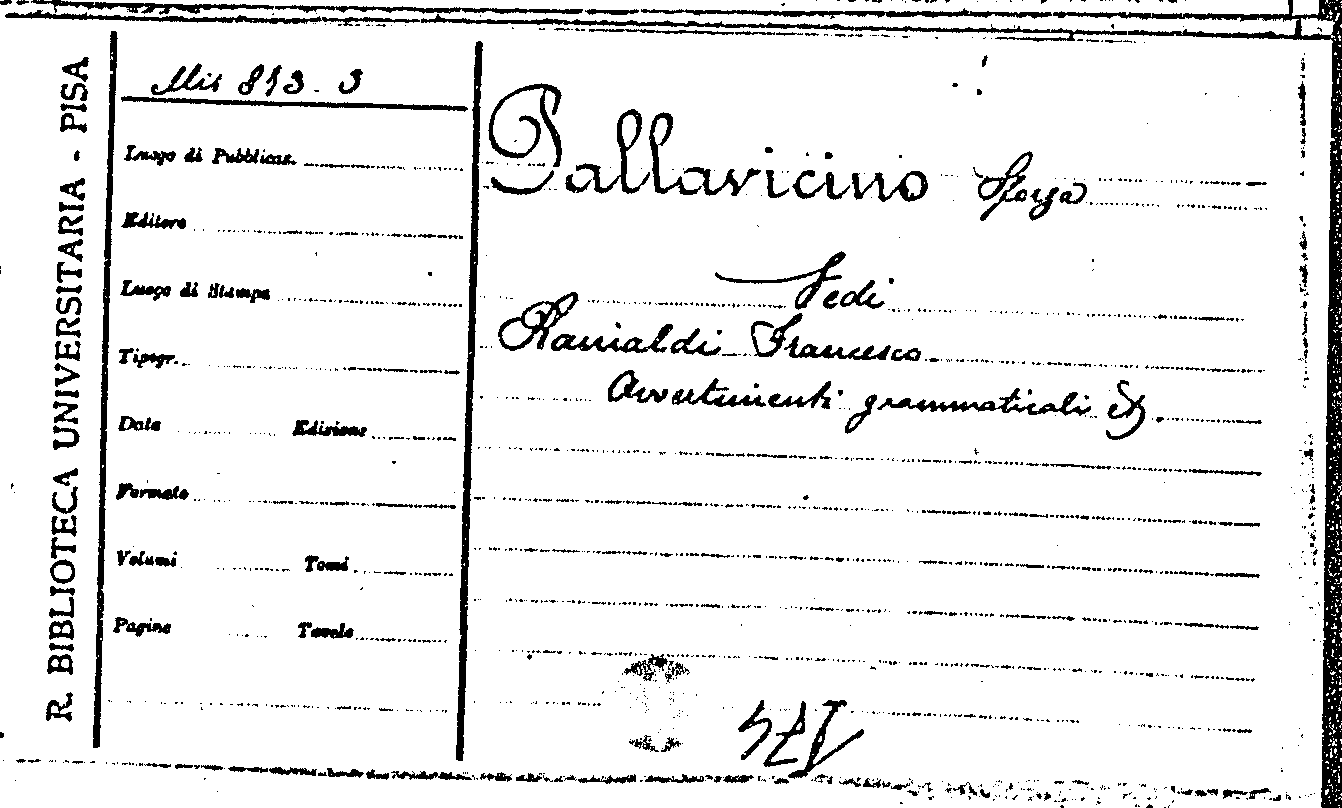 R. BIBLIOTECA UNIVERSITARIA - PISA
Mis 813. 3
Luogo di Pubblicaz.
Editore
Luogo di Stampa
Tipogr.
Data Edizione
Formato
Volumi Tomi
Pagine Tavole
Pallavicino Sforza
Vedi
Rainaldi Francesco.
Avvertimenti grammaticali &.